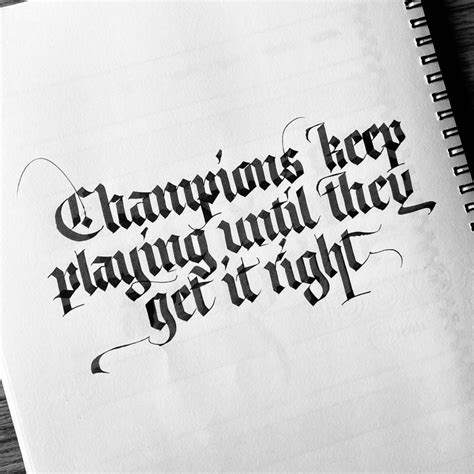 Champions keep
playing until they
get it right